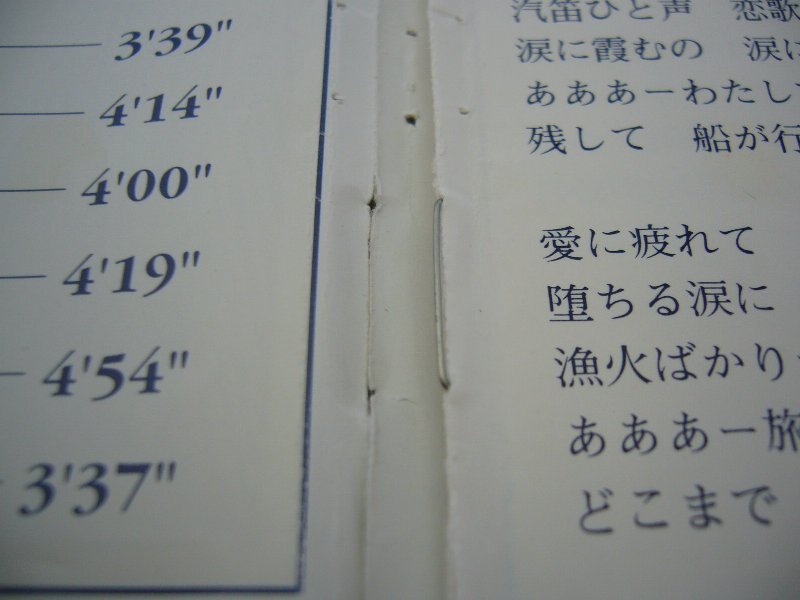 3'39"
4'14"
4'00"
4'19"
4'54"
3'37"
汽笛ひと声 恋歌
涙に霞むの 涙に
あああーわたし
残して 船が行
愛に疲れて
堕ちる涙に
漁火ばかり
あああー旅
どこまで